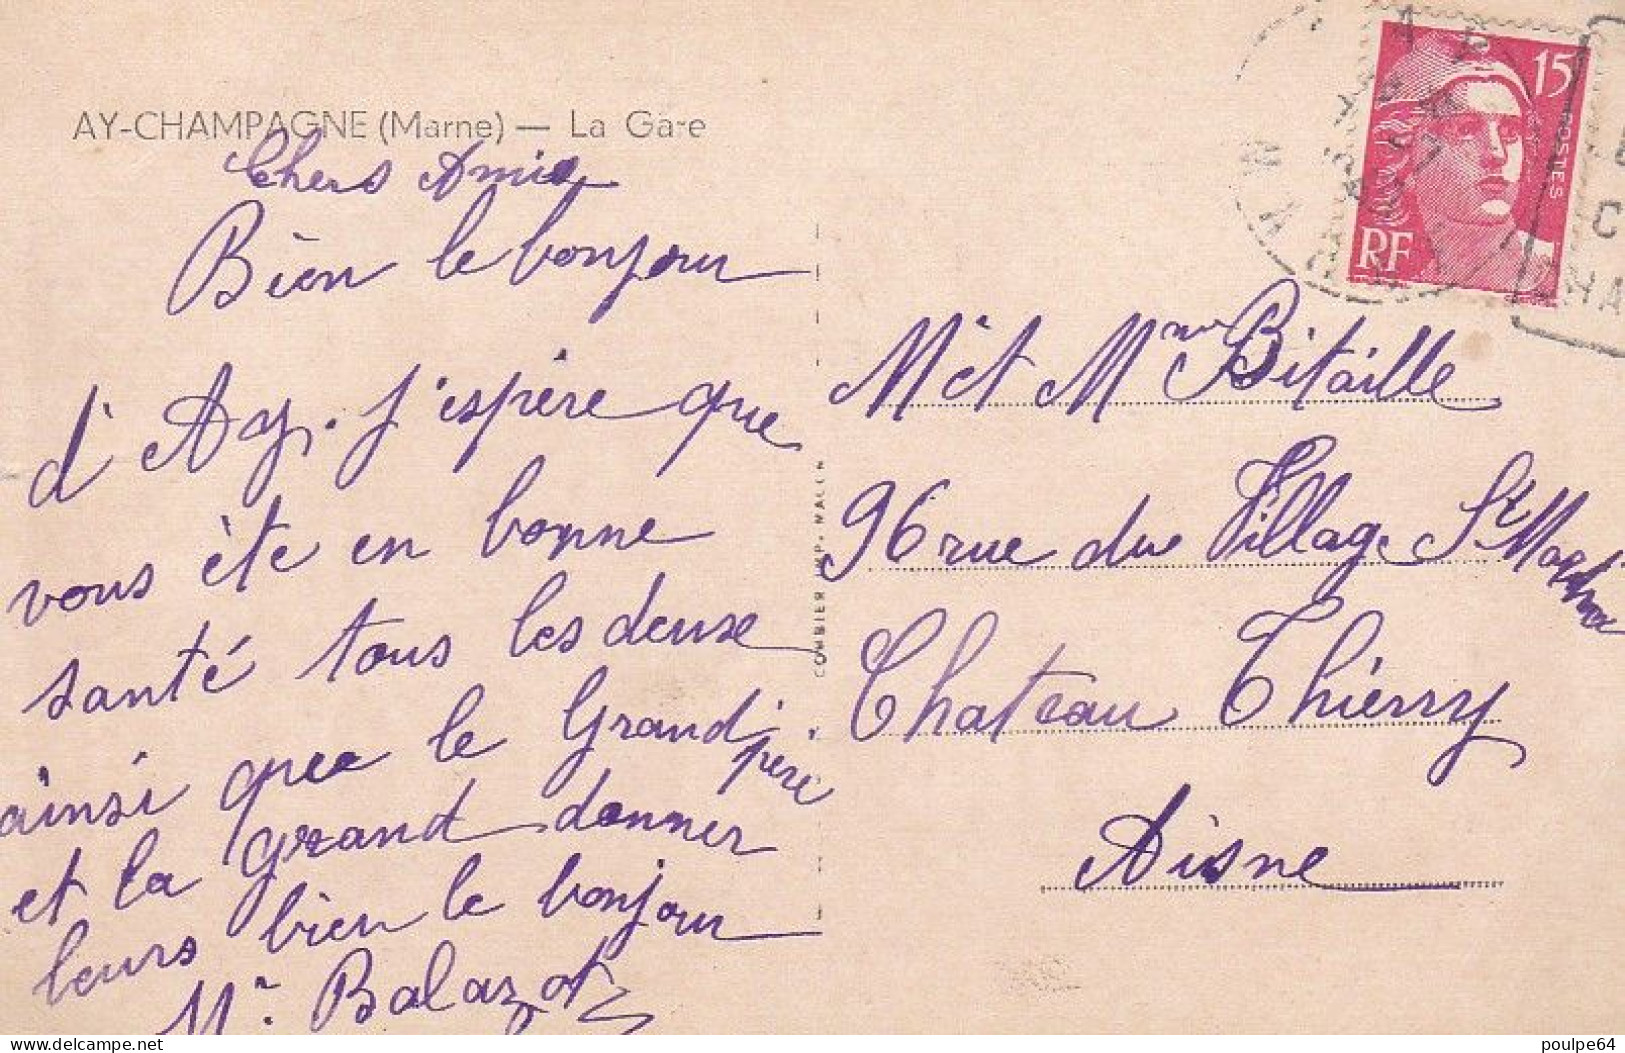 AY-CHAMPAGNE (Marne) — La Gare
Chers Amis
Bien le bonjour
d'Ay. j'espère que
vous ète en bonne
santé tous les deuxe
ainsi que le Grand père
et la grand donner
leurs bien le bonjour
Mr. Balazot
COMBIER IMP. MACON
15
POSTES
RF
Mr et Mme Bitaille
96 rue du Village St Martin
Chateau Thierry
Aisne
www.delcampe.net
poulpe64